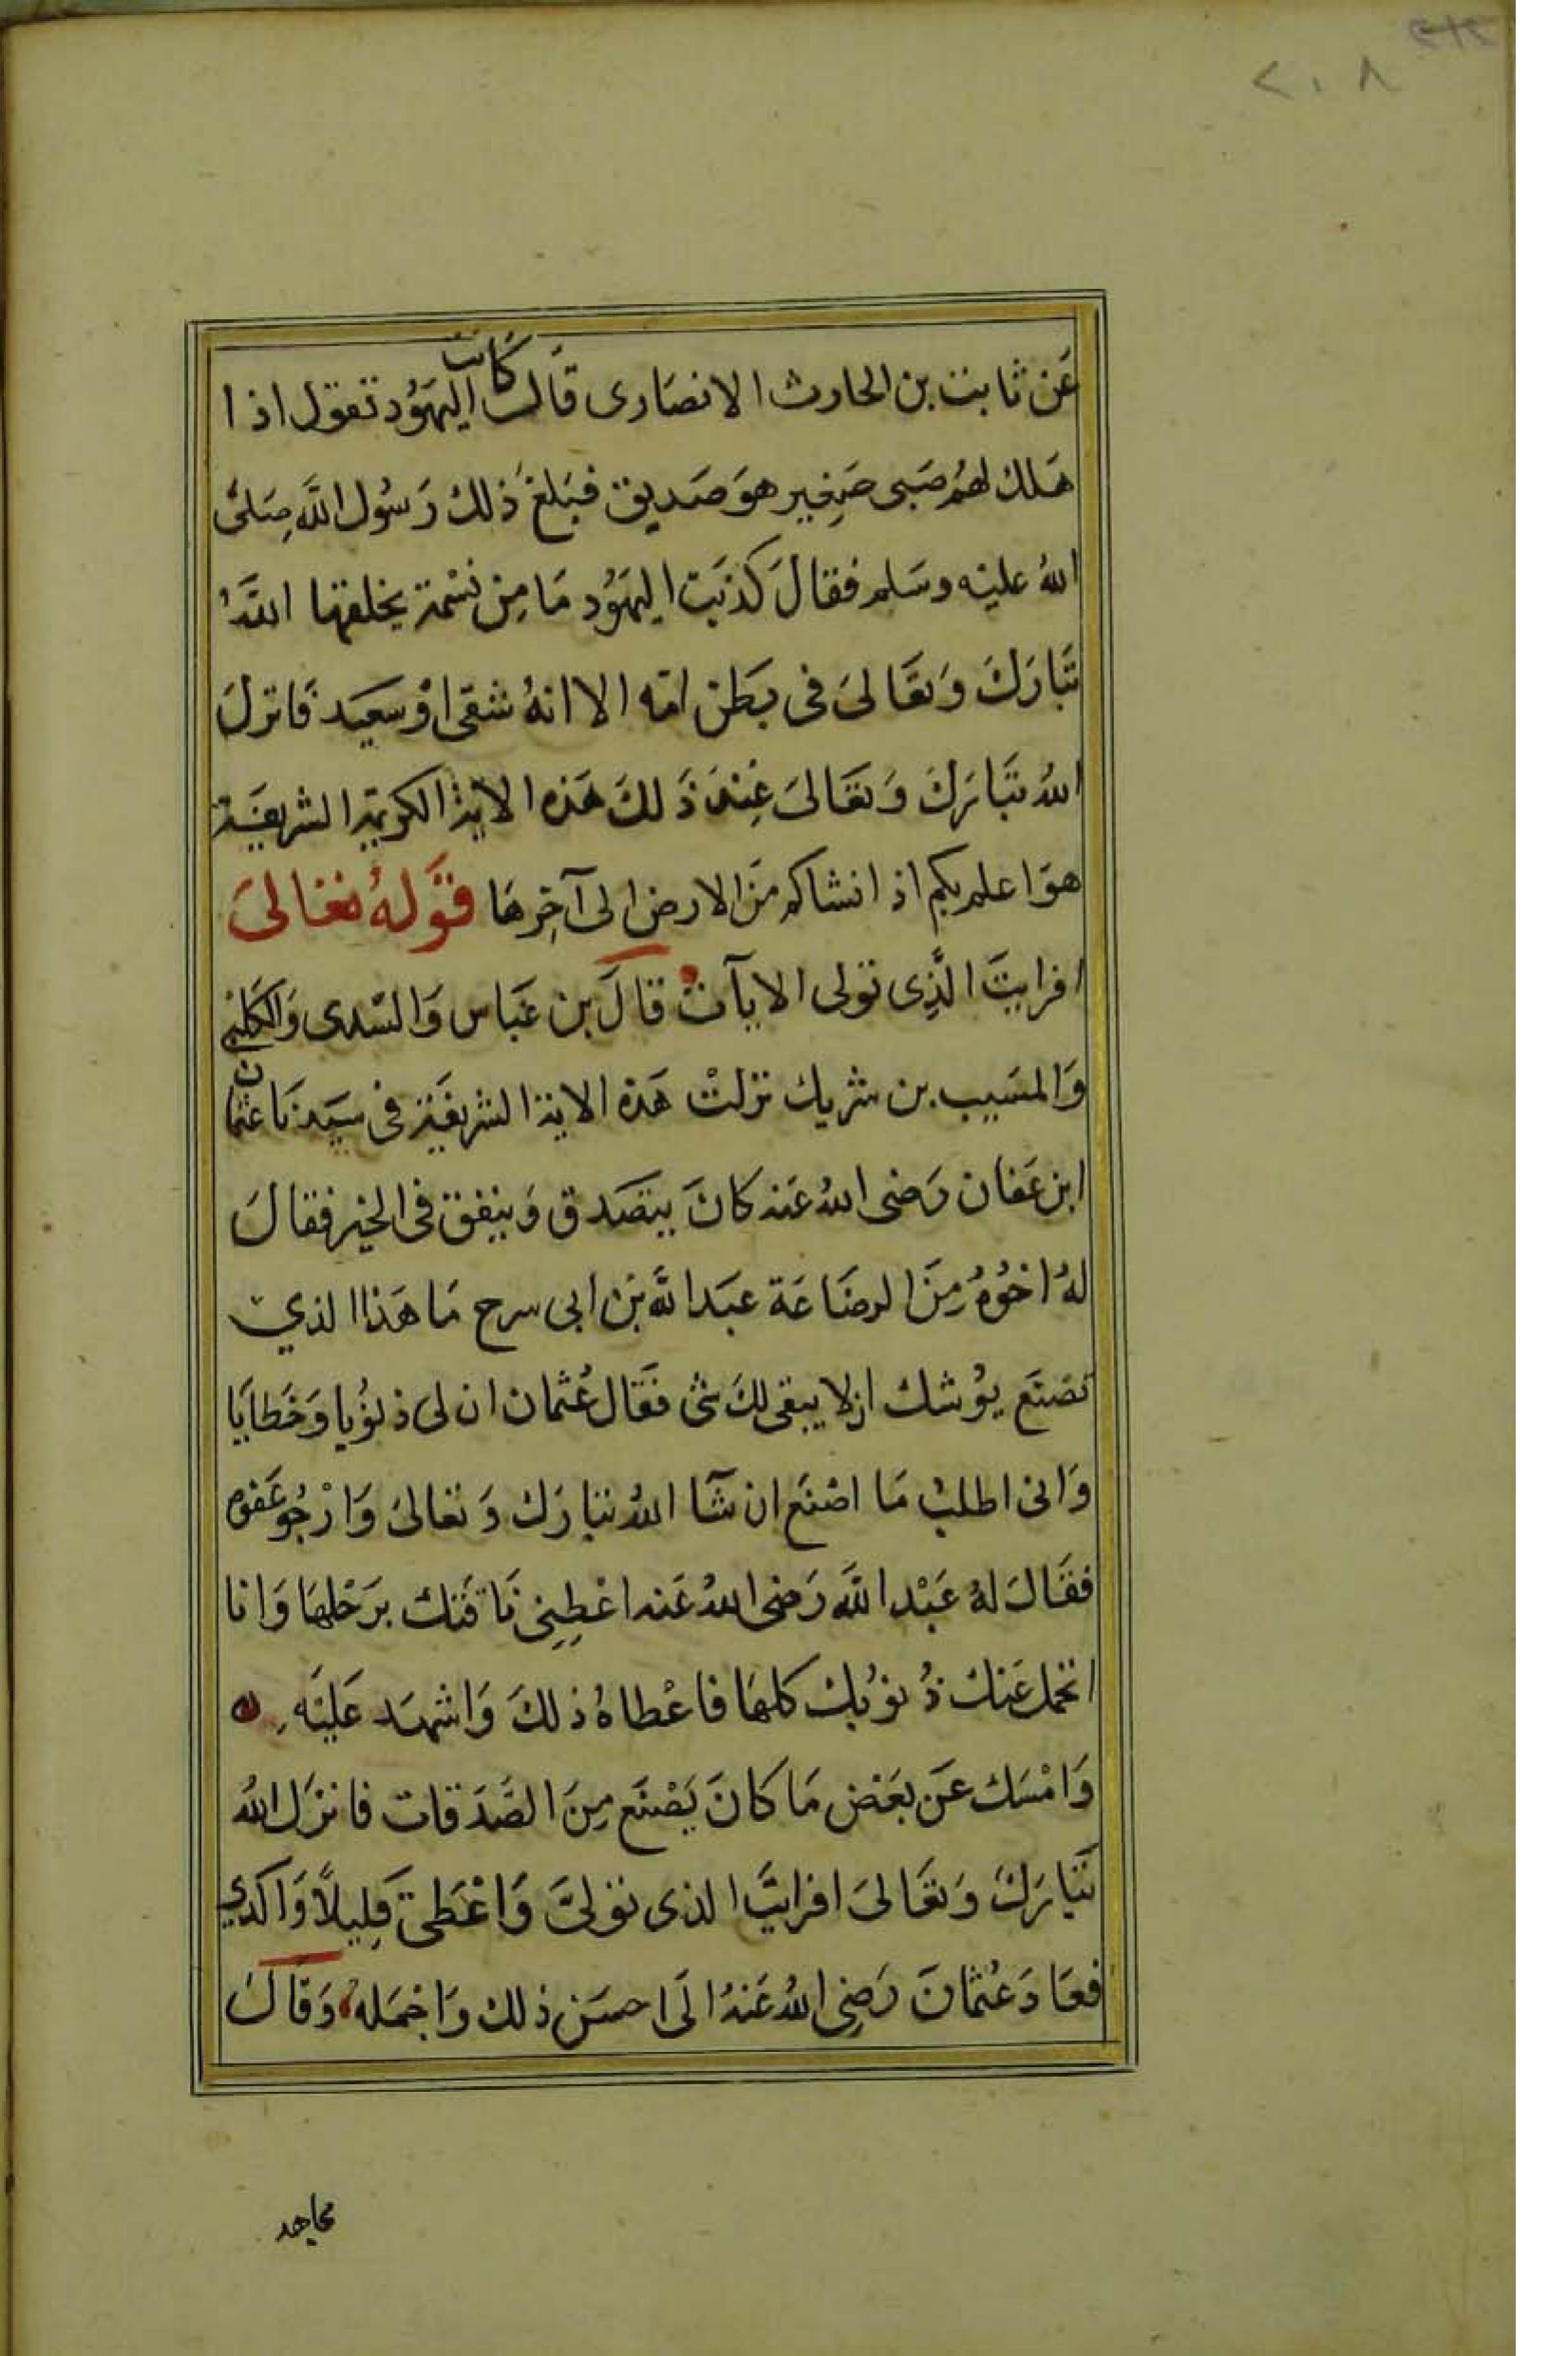 ٢٠٨
عَن ثابت بن الحارث الانصارى قَال كانت اليهَوُد تقول اذا
هَلك لهُم صَبى صَغِير هوَ صَديق فبَلغ ذلك رَسُول اللَّه صَلىَّ
اللهُ عليْه وسَلم فقالَ كذبَت اليهَوُد مَا مِن نسْمة يخلقها اللَّهُ
تبَارَكَ وَتعَالىَ فى بَطن امّه الا انهُ شقى اوْ سعيَد فَانزلَ
اللهُ تبَارَكَ وَتعَالىَ عِندَ ذَلكَ هَذه الاية الكريمة الشريفَة
هوَ اعلم بكم اذ انشاكم مَن الارض الى آخِرهَا قوَّلهُ تعَالىَ
افرايتَ الَّذِى تولى الايآت قالَ بن عَبَاس وَالسّدى وَالكَلبْى
وَالمسَيب بن شريك نزلتْ هَذه الاية الشريفَة فى سَيدنَا عثمان
ابن عَفان رَضى اللهُ عَنه كانَ يتصَدق وَينفق فى الخير فقالَ
لهُ اخوُهُ مِنَ الرضَاعَة عبَد اللَّه بَن ابى سرح مَا هَذا الذي
تصنَع يوُشك ان لا يبقى لكَ شى فقَال عُثمان ان لى ذنوُبا وَخَطايَا
وَانى اطلبْ مَا اصْنَع ان شَآ اللهُ تبارَك وَتعَالىَ وَارْجُو عَفوه
فقَالَ لهُ عَبْد اللَّه رَضى اللهُ عَنه اعْطِنِى نَاقتَك برَحْلهَا وَانا
اتحمل عَنك ذُنوُبك كلهَا فاعْطاهُ ذلكَ وَاشهَد عَليَه
وَامْسَك عَن بعَض مَا كانَ يَصْنَع مِنَ الصَّدَقات فانزَل اللهُ
تبَارَكَ وَتعَالىَ افرايتَ الذى تولىَّ وَاعْطَى قَلِيلاً وَاكدي
فعَادَ عُثمانَ رَضِى اللهُ عَنهُ الَى احسَن ذلك وَاجمَله وَقَالَ
مجاهد